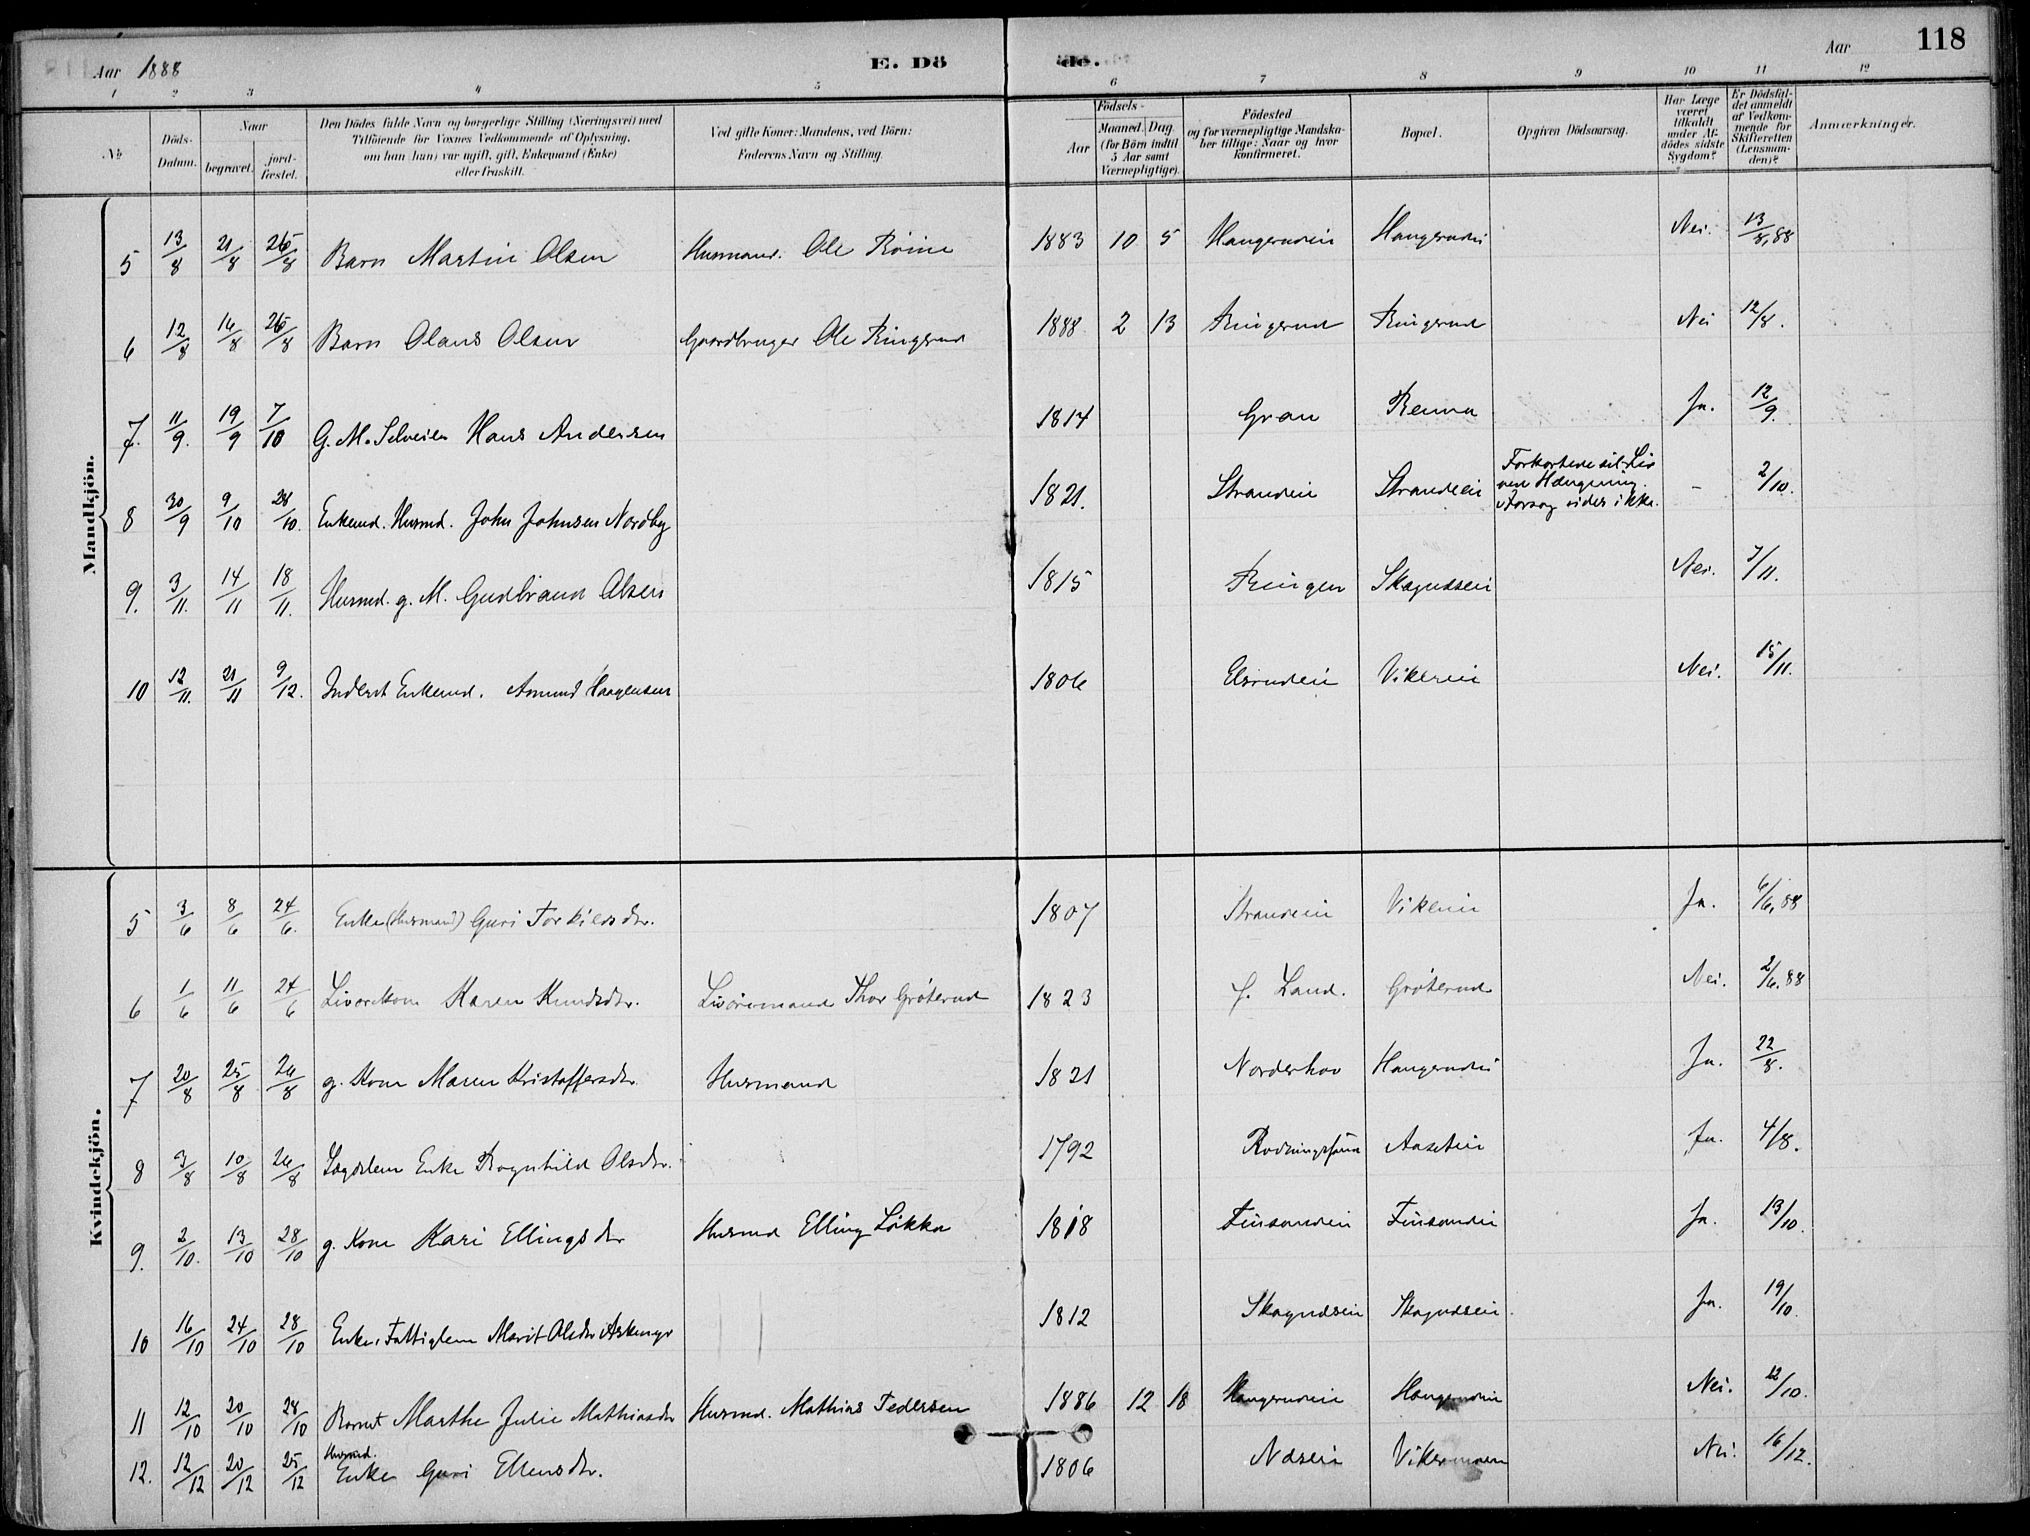 Aar 1888 E. Dö de. Aar 118
1 2 3 4 5 6 7 8 9 10 11 12
No
Döds-Datum.
Naar
begravet.
jord-fæstet.
Den Dödes fulde Navn og borgerlige Stilling (Næringsvei) med
Tilföiende for Voxnes Vedkommende af Oplysning,
om han (hun) var ugift, gift, Enkemand (Enke)
eller fraskilt.
Ved gifte Koner: Mandens, ved Börn:
Faderens Navn og Stilling.
Födsels-
Aar
Maaned. Dag
(for Börn indtil
5 Aar samt
Værnepligtige).
Födested
og for værnepligtige Mandska-
ber tillige: Naar og hvor
konfirmeret.
Bopæl.
Opgiven Dödsaarsag.
Har Læge
været
tilkaldt
under Af-
dödes sidste
Sygdom?
Er Dödsfal-
det anmeldt
af Vedkom-
mende for
Skifteretten
(Lensman-
den)?
Anmærkninger.
Mandkjön.
5 13/8 21/8 26/8 Barn Martin Olsen Husmand. Ole 1883 10 5 Haugerudei Haugerudei Nei. 13/8, 88
6 12/8 16/8 26/8 Barn Olaus Olsen Gaardbruger Ole Ringerud 1888 2 13 Ringerud Ringerud Nei 12/8.
7. 11/9. 19/9 7/10 G. M. Selveier Hans Andersen 1814 Gran Renna Ja. 12/9.
8 30/9 9/10 28/10. Enkemd. Husmd. John Johnsen Nordby 1821. Strandein Strandein
Forkortede sit Liv
ved Hængning.
Aarsag vides ikke. – 2/10.
9. 3/11. 14/11 18/11. Husmd. g. M. Gudbrand Olsen 1815 Ringen Skagndsein Nei. 7/11.
10 12/11. 21/11 9/12. Inderst Enkemd. Amund Haagensen 1806 Elsrudein Vikerein Nei. 15/11.
Kvindekjön.
5 3/6 8/6 24/6. Enke (Husmand) Guri Torkildsdtr. 1807 Strandein Vikerein Ja. 6/6, 88
6 1/6 11/6 24/6 Livørekone Karen Knudsdtr. Livøremand Thor Grøterud 1823 S. Land. Grøterud Nei. 2/6, 88
7 20/8 25/8 26/8 g. Kone Maren Kristoffersdtr. Husmand 1821 Norderhov Haugerudei Ja. 22/8.
8 3/8 10/8 26/8 Lægdslem Enke Ragnhild Olsdtr. 1792 Aasetein Ja. 4/8.
9. 2/10. 13/10 28/10 g. Kone Kari Ellingsdtr Husmd Elling Løkka 1818 Finsandein Finsandein Ja. 13/10.
10 16/10 24/10 28/10 Enke, Fattiglem Marit Olsdtr 1812 Skagndsein Skagndsein. Ja. 19/10.
11 12/10 20/10 28/10 Barnet Marthe Julie Mathiasdtr Husmd. Mathias Pedersen 1886 12 18 Haugerudein Haugerudein Nei. 22/10.
12. 12/12 20/12 25/12 Husmd. Enke Guri Ellensdtr. 1806 Næsein Vikermoen Nei. 16/12.